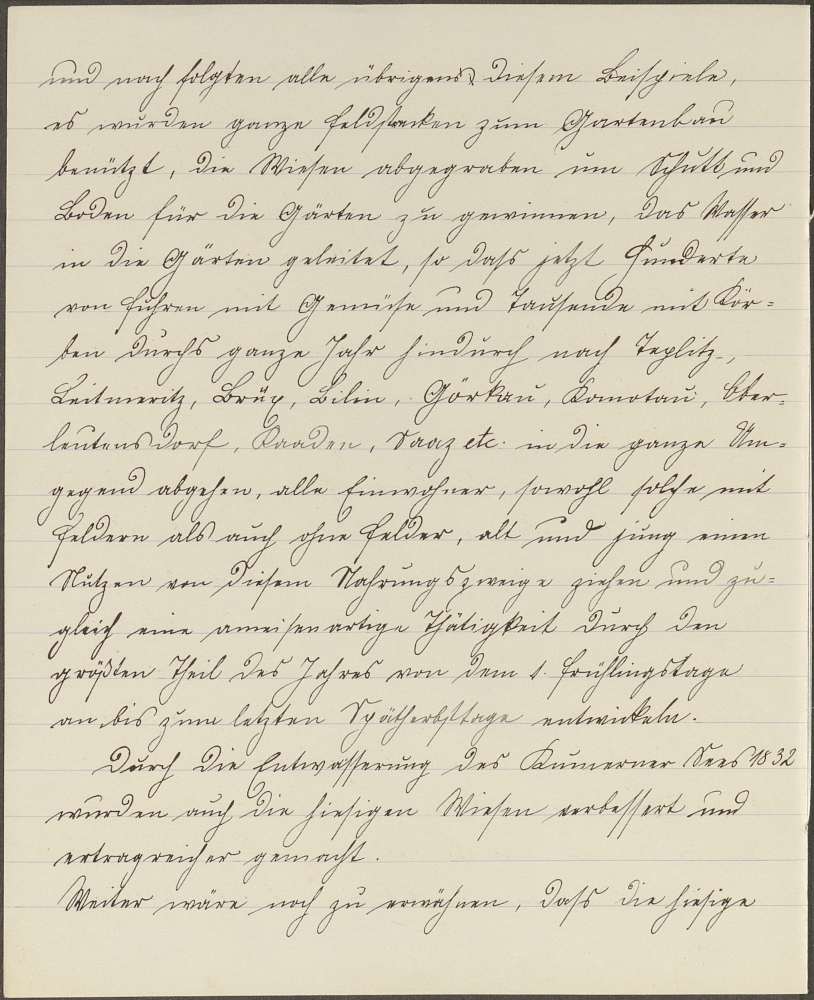 und nach folgten alle übrigens diesem Beispiele,
es wurden ganze Feldstrecken zum Gartenbau
benützt, die Wiesen abgegraben um Schutt und
Boden für die Gärten zu gewinnen, das Wasser
in die Gärten geleitet, so dass jetzt Hunderte
von Fuhren mit Gemüse und Tausende mit Kör-
ben durchs ganze Jahr hindurch nach Teplitz,
Leitmeritz, Brüx, Bilin, Görkau, Komotau, Ober-
leutensdorf, Kaaden, Saaz etc. in die ganze Um-
gegend abgehen, alle Einwohner, sowohl solche mit
Feldern als auch ohne Felder, alt und jung einen
Nutzen von diesem Nahrungszweige ziehen und zu-
gleich eine ameisenartige Thätigkeit durch den
größten Theil des Jahres von dem 1. Frühlingstage
an bis zum letzten Spätherbsttage entwickeln.
Durch die Entwasserung des Kumerner Sees 1832
wurden auch die hiesigen Wiesen verbessert und
ertragreicher gemacht.
Weiter wäre noch zu erwähnen, dass die hiesige